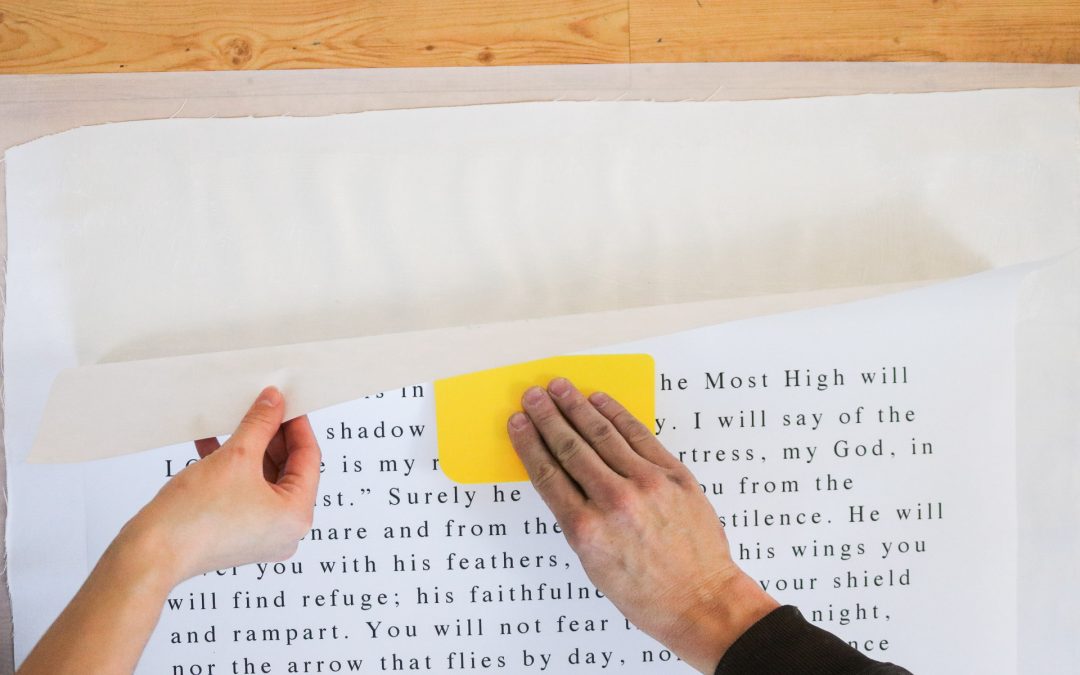 in Most High will
shadow I will say of the
is my my God, in
Surely he from the
and from the He will
you with his feathers, his wings you
will find refuge; his your shield
and rampart. You will not fear night,
nor the arrow that flies by day,